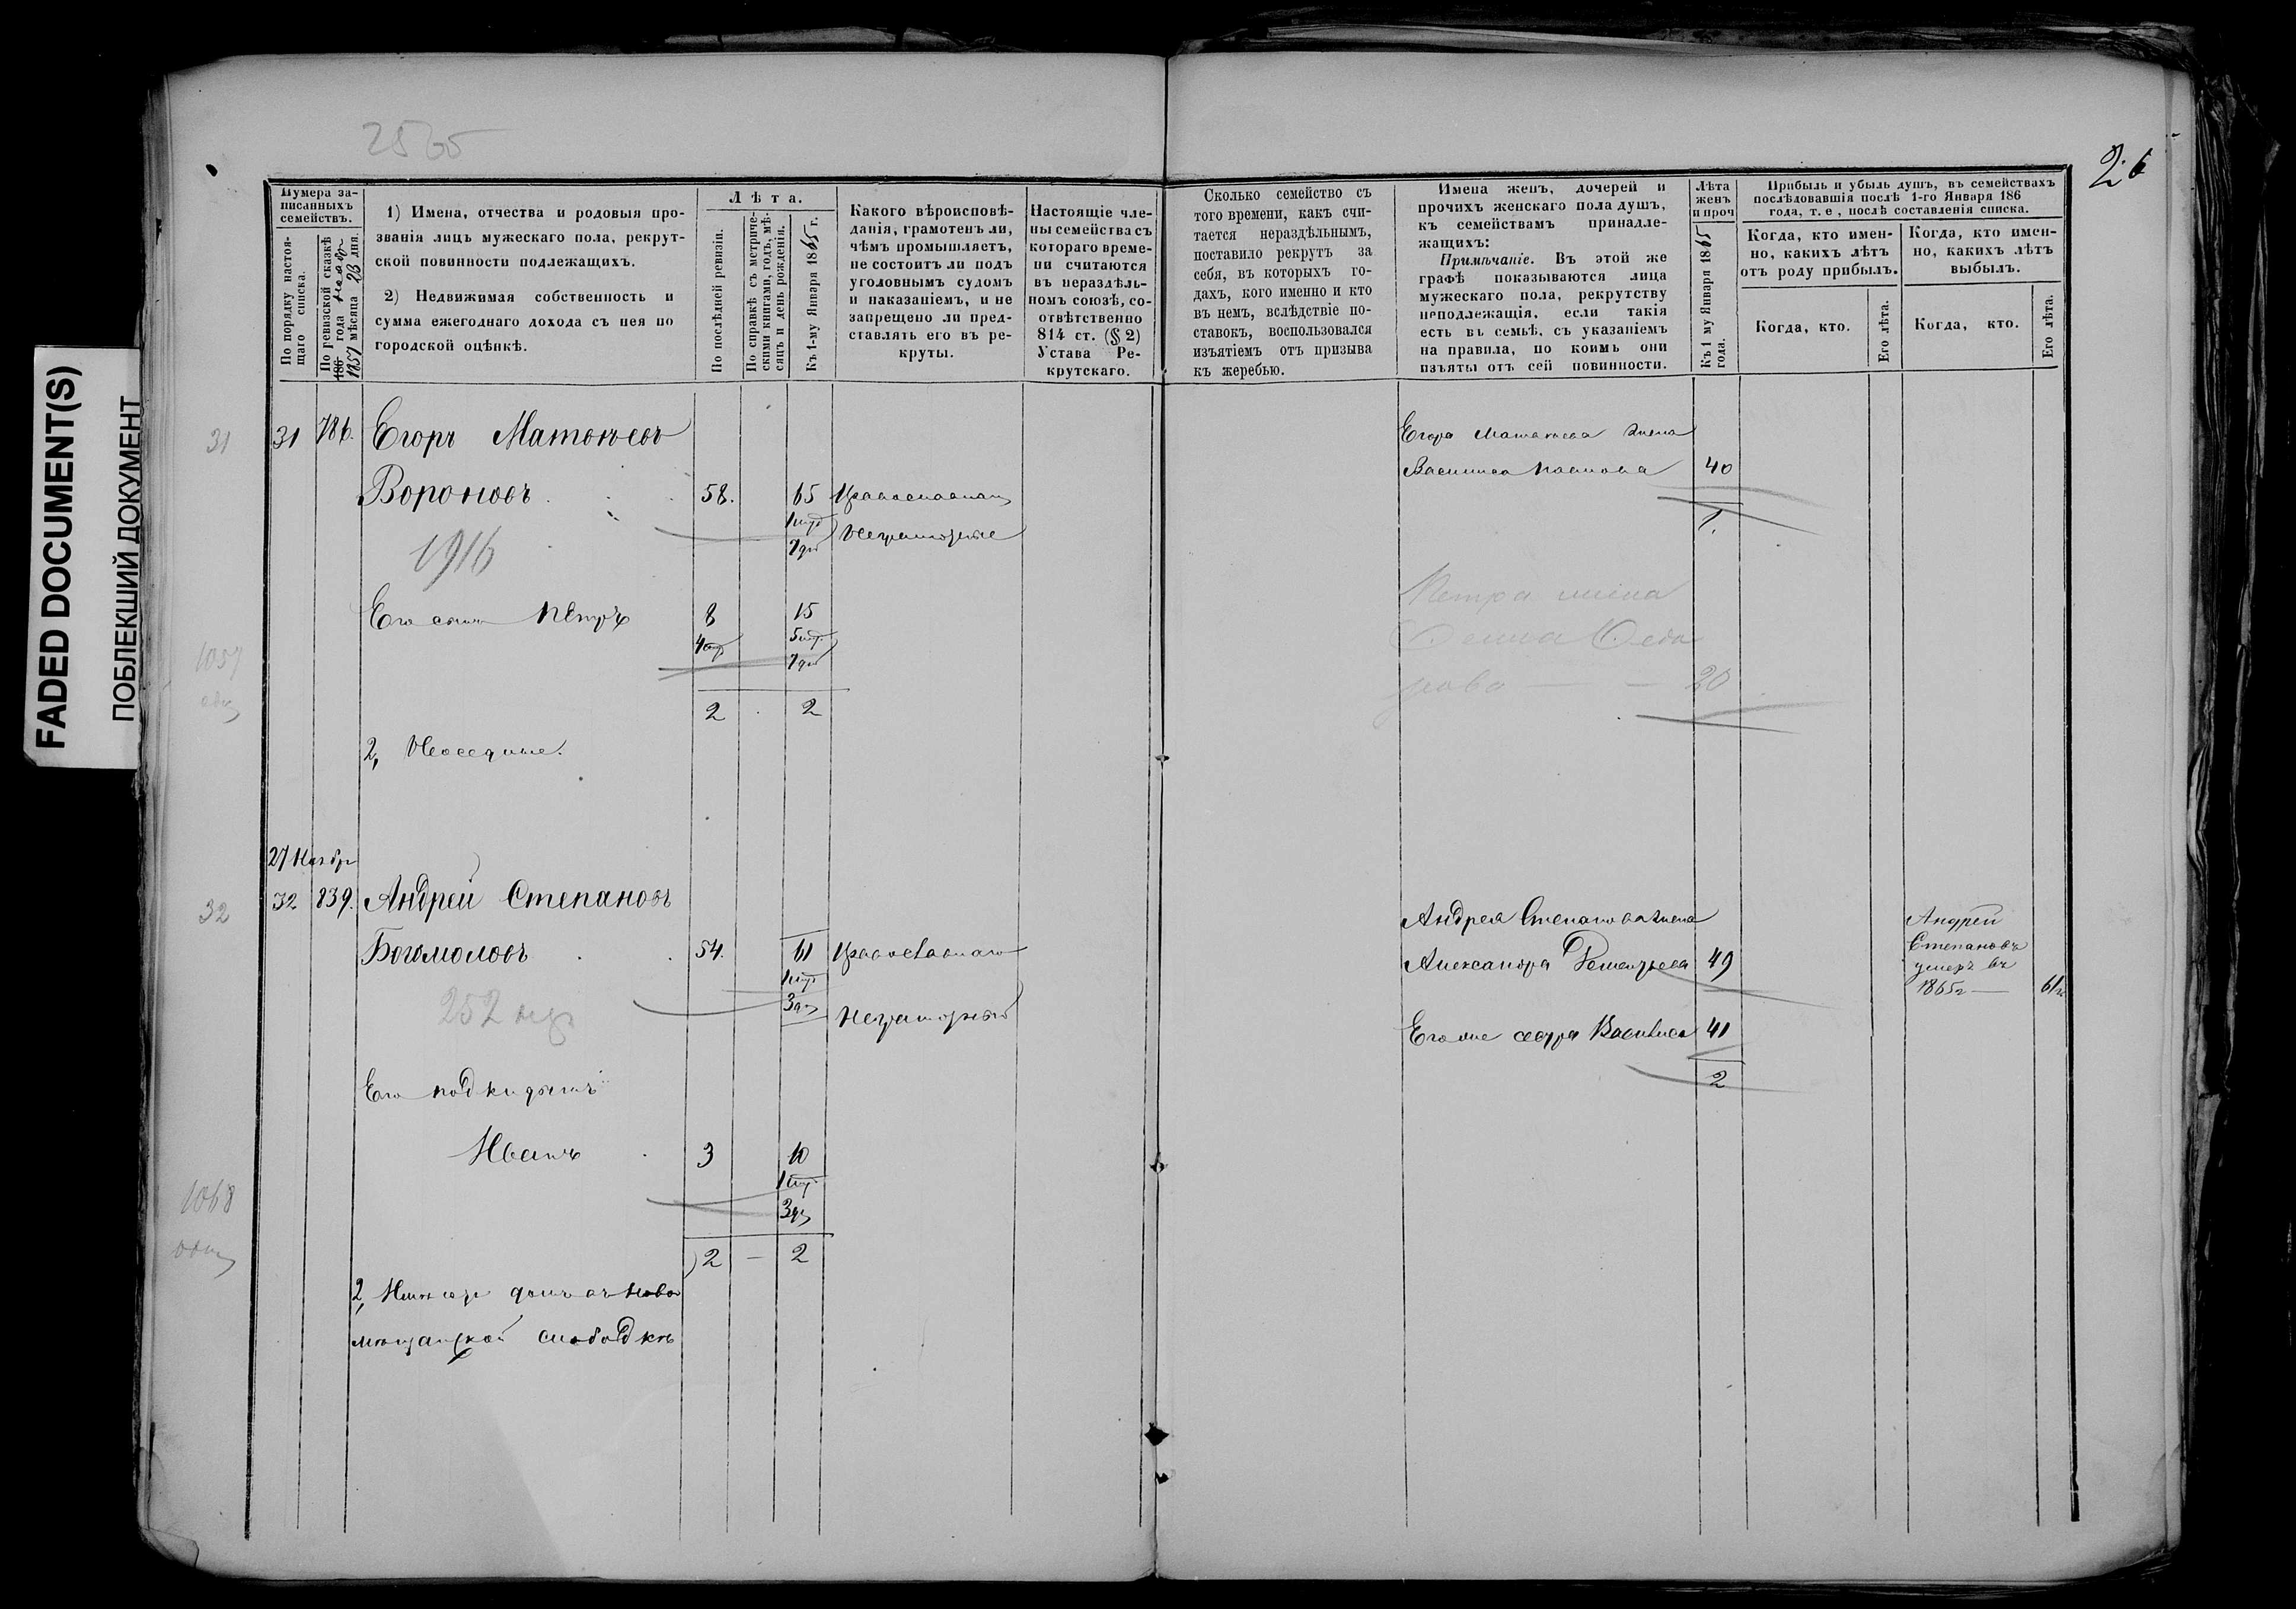 FADED DOCUMENT(S)
ПОБЛЕКШИЙ ДОКУМЕНТ
2565
26
Нумера за-
писанныхъ
семействъ.
По порядку настоя-
щаго списка.
По ревизской сказкѣ
186 года Ноябр
1857 мѣсяца 23 дня.
1) Имена, отчества и родовыя про-
званія лицъ мужескаго пола, рекрут-
ской повинности подлежащихъ.
2) Недвижимая собственность и
сумма ежегоднаго дохода съ нея по
городской оцѣнкѣ.
Лѣта.
По послѣдней ревизіи.
По справкѣ съ метриче-
скими книгами, годъ, мѣ-
сяцъ и день рожденія.
Къ 1-му Января 1865 г.
Какого вѣроисповѣ-
данія, грамотенъ ли,
чѣмъ промышляетъ,
не состоитъ ли подъ
уголовнымъ судомъ
и наказаніемъ, и не
запрещено ли пред-
ставлять его въ ре-
круты.
Настоящіе чле-
ны семейства съ
котораго време-
ни считаются
въ нераздѣль-
номъ союзѣ, со-
отвѣтственно
814 ст. (§ 2)
Устава Ре-
крутскаго.
Сколько семейство съ
того времени, какъ счи-
тается нераздѣльнымъ,
поставило рекрутъ за
себя, въ которыхъ го-
дахъ, кого именно и кто
въ немъ, вслѣдствіе по-
ставокъ, воспользовался
изъятіемъ отъ призыва
къ жеребью.
Имена женъ, дочерей и
прочихъ женскаго пола душъ,
къ семействамъ принадле-
жащихъ:
Примѣчаніе. Въ этой же
графѣ показываются лица
мужескаго пола, рекрутству
неподлежащія, если такія
есть въ семьѣ, съ указаніемъ
на правила, по коимъ они
изъяты отъ сей повинности.
Лѣта
женъ
и проч
Къ 1 му Января 1865
года.
Прибыль и убыль душъ, въ семействахъ
послѣдовавшія послѣ 1-го Января 186
года, т. е, послѣ составленія списка.
Когда, кто имен-
но, какихъ лѣтъ
отъ роду прибылъ.
Когда, кто имен-
но, какихъ лѣтъ
выбылъ.
Когда, кто.
Его лѣта.
Когда, кто.
Его лѣта.
31 31 786. Егоръ Матвѣевъ
Вороновъ 58. 65 Православнаго
1 мѣс
7 дн Неграмотные
1916
Его сынъ Петръ 8 15
4 мѣс 5 мѣс
7 дн
1057
2 2
2, Неоседлые.
Егора Матвѣева жена
Василиса 40
1.
Петра жена
Федо
рова 20
27 Ноябр
32 32 839. Андрей Степановъ
Богомоловъ 54. 61 Православнаго
1 мѣс
3 дн Неграмотный
252
Его подкидышъ
Иванъ 3 10
1 мѣс
3 дн
1068
2 — 2
2, Имѣютъ домъ въ Ново
мѣщанской слободкѣ
Андрея Степанова жена
Александра 49
Его же сестра Василиса 41
2
Андрей
Степановъ
умеръ въ
1865 г — 61 г.